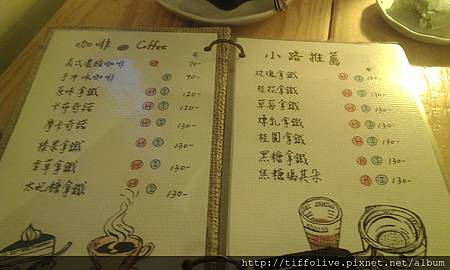 咖啡 Coffee
義式濃縮咖啡 H 70-
手沖冰咖啡 70-
原味拿鐵 H 120-
卡布奇諾 H 120-
摩卡奇諾 H 130-
榛果拿鐵 H 130-
香草拿鐵 H 130-
太妃糖拿鐵 H 130-
小路推薦
玫瑰拿鐵 H 130-
桂花拿鐵 H 130-
草莓拿鐵 H 130-
煉乳拿鐵 H 130-
桂圓拿鐵 H 130-
黑糖拿鐵 H 130-
焦糖瑪其朵 H 130-
http://tiffolive.pixnet.net/album